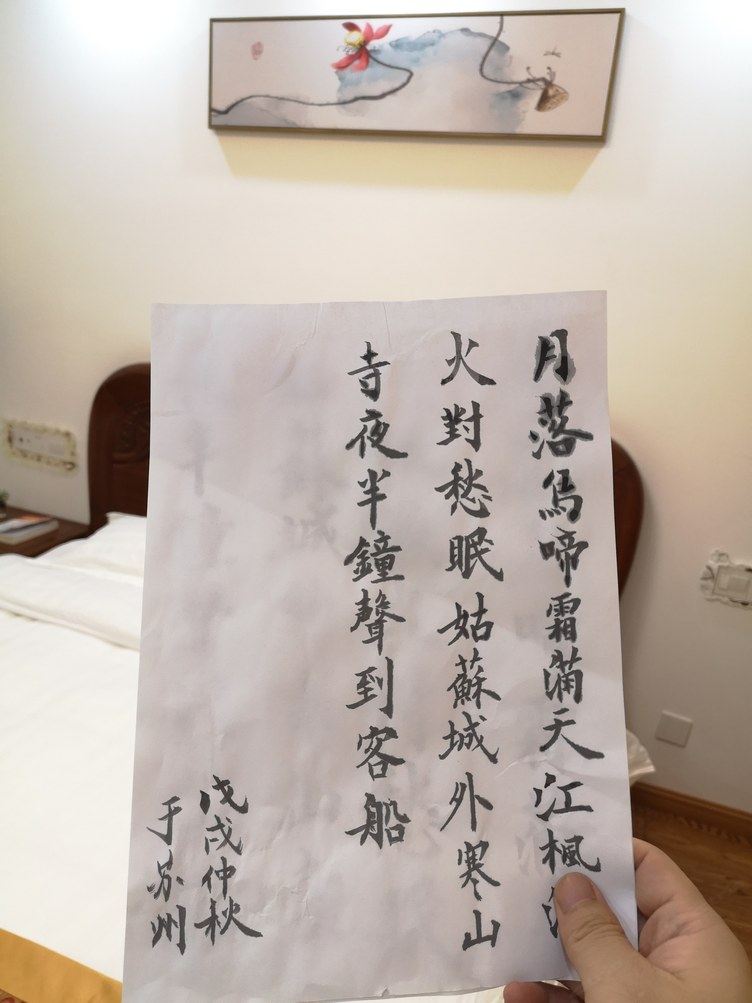 月落烏啼霜滿天江楓
火對愁眠姑蘇城外寒山
寺夜半鐘聲到客船
戊戌仲秋
于苏州